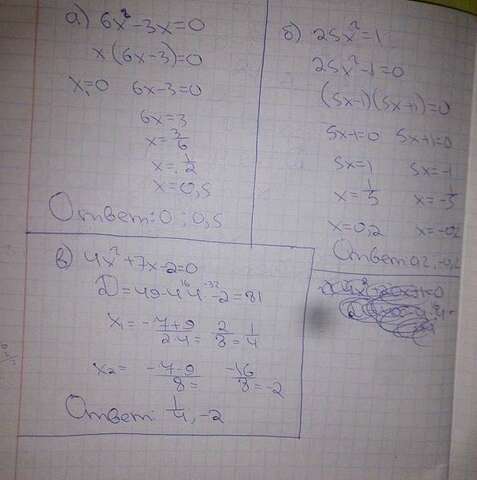 а) 6x²-3x=0
x(6x-3)=0
x=0 6x-3=0
6x=3
x=3/6
x=1/2
x=0,5
Ответ: 0; 0,5
б) 25x²=1
25x²-1=0
(5x-1)(5x+1)=0
5x-1=0 5x+1=0
5x=1 5x=-1
x=1/5 x=-1/5
x=0,2 x=-0,2
Ответ 0,2, -0,2
в) 4x²+7x-2=0
D=49-4·4·-2=81
x₁=-7+9/2·4=2/8=1/4
x₂=-7-9/8=-16/8=-2
Ответ: 1/4, -2